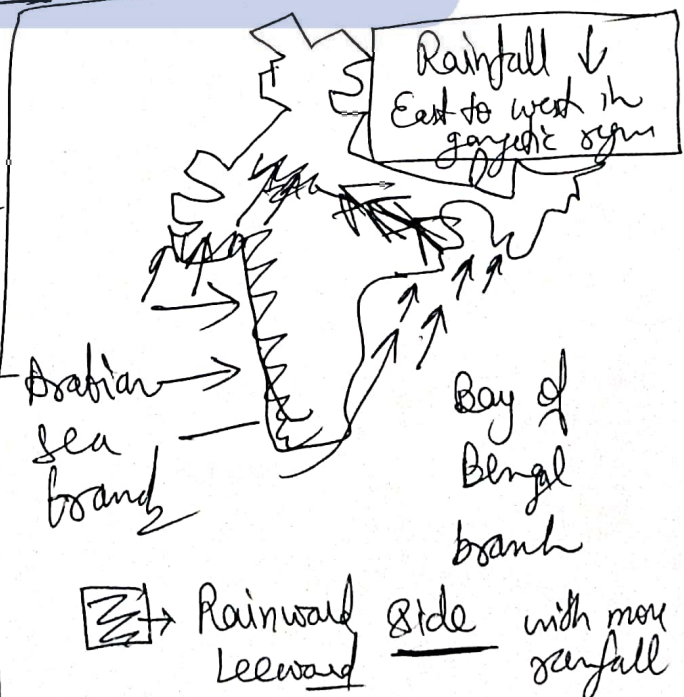 Rainfall ↓
East to west in
gangetic regn
Arabian
sea
branch
Bay of
Bengal
branch
→ Rainward side with more
Leeward rainfall